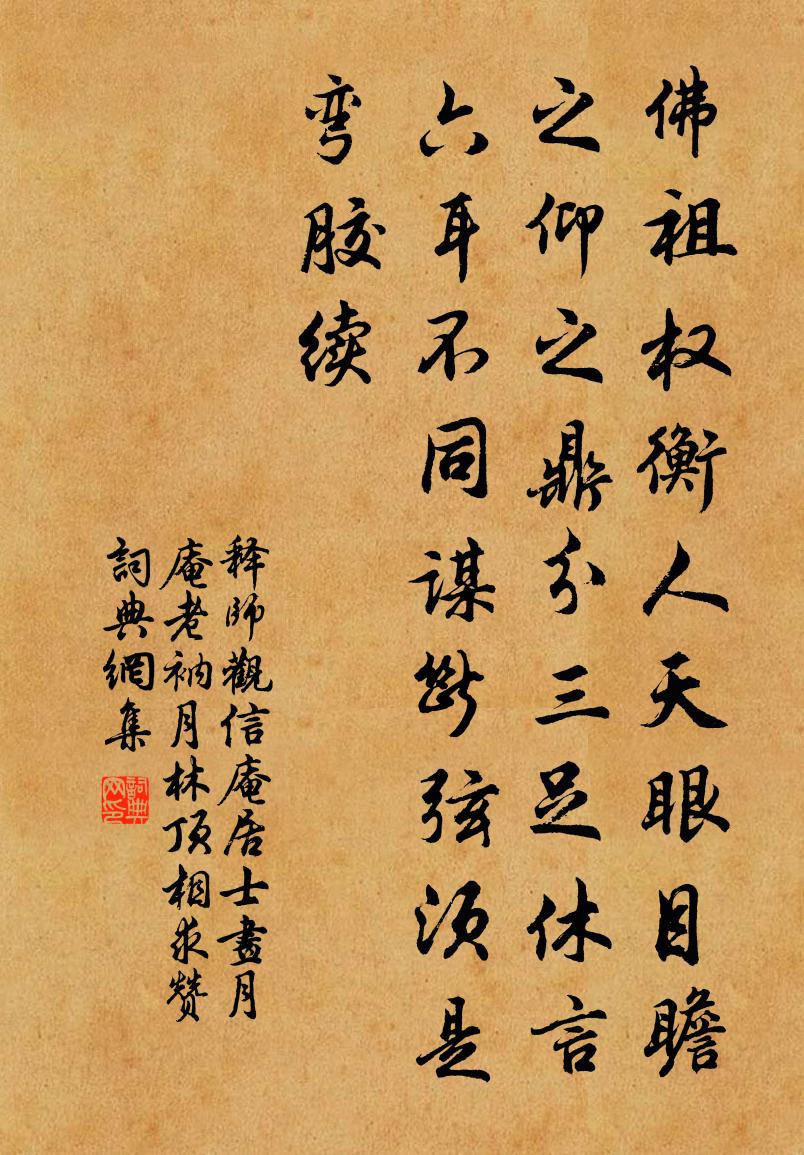 佛祖权衡人天眼目瞻
之仰之鼎分三足休言
六耳不同谋断弦须是
鸾胶续
释师觀信庵居士畫月
庵老衲月林顶相求赞
詞典網集
詞典网印